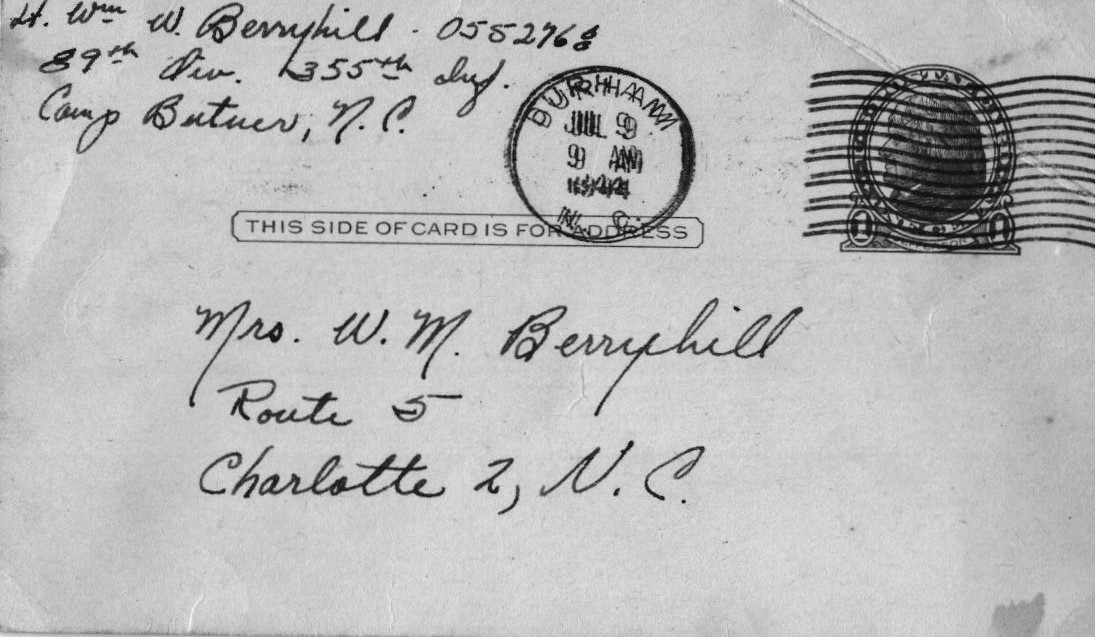 Lt. Wm W. Berryhill. 0552768
89th Div. 355th Inf.
Camp Butner, N.C.
DURHAM
JUL 9
9 AM
1944
N. C.
THIS SIDE OF CARD IS FOR ADDRESS
1 1
Mrs. W. M. Berryhill
Route 5
Charlotte 2, N. C.